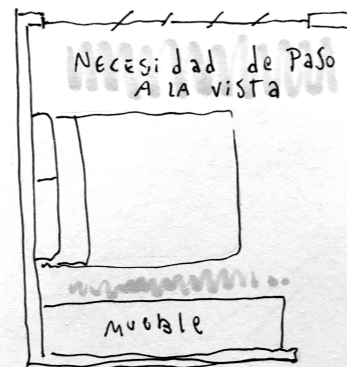 NECESidad de PASO
A LA vista
Mueble